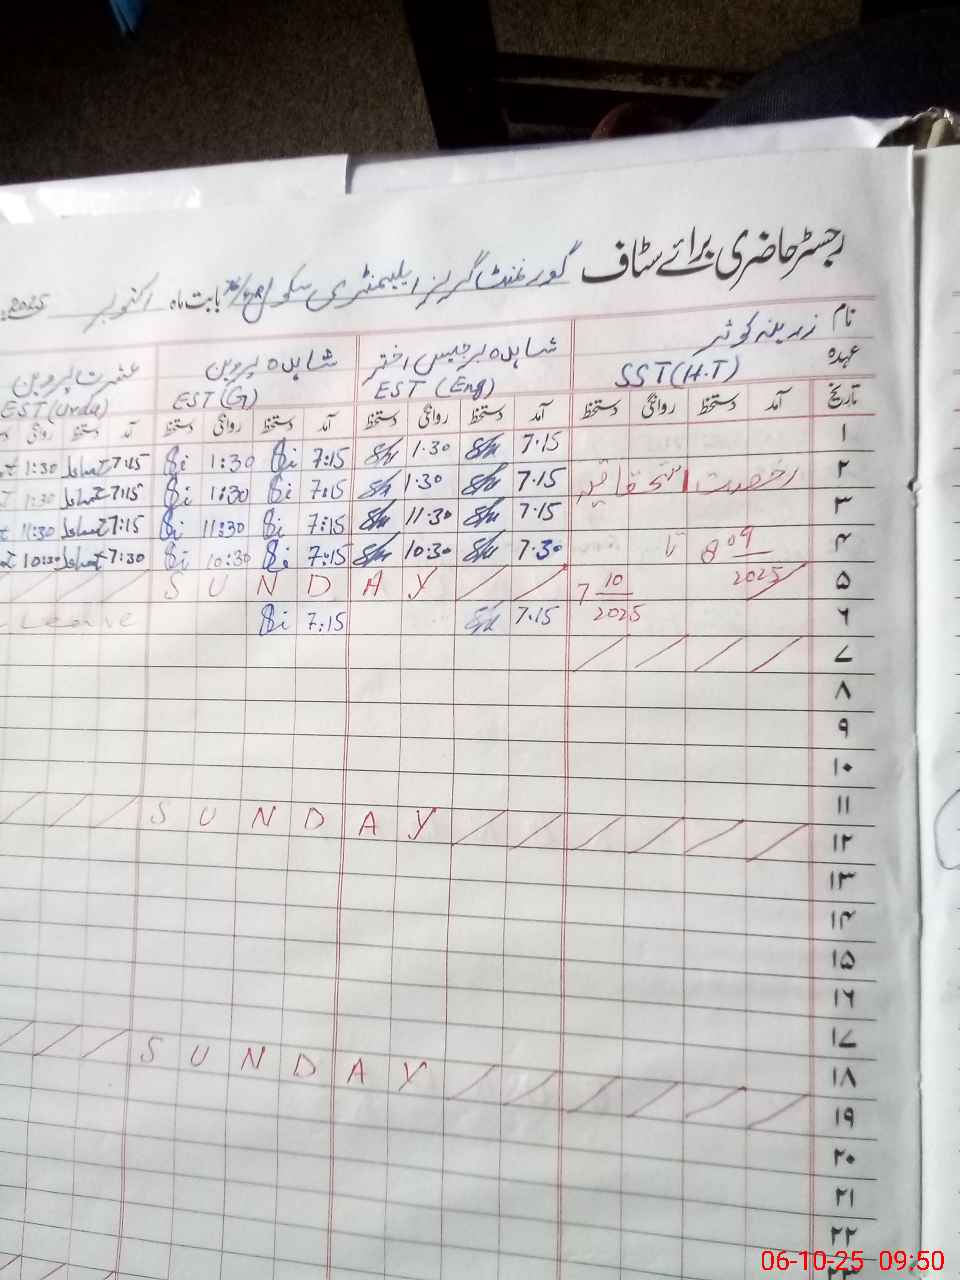 رجسٹر حاضری برائے سٹاف گورنمنٹ گرلز ایلیمنٹری سکول بابت ماہ اکتوبر 2025
نام زرینہ کوثر شاہدہ برجیس اختر شاہدہ پروین عشرت پروین
عہدہ SST(H.T) EST (Eng) EST(G) EST(Urdu)
تاریخ آمد دستخط روانگی دستخط آمد دستخط روانگی دستخط آمد دستخط روانگی دستخط آمد دستخط روانگی
۱ 7.15 1.30 7:15 1:30 7:15 1:30
۲ رخصت استحقاقیہ 7.15 1.30 7:15 1:30 7:15 1:30
۳ 7.15 11.30 7:15 11:30 7:15 11:30
۴ 8 09 2025 تا 7.30 10:30 7:15 10:30 7:30 10:30
۵ 7 10 2025 SUNDAY
۶ 7.15 7:15 Leave
۷
۸
۹
۱۰
۱۱
۱۲ SUNDAY
۱۳
۱۴
۱۵
۱۶
۱۷
۱۸
۱۹ SUNDAY
۲۰
۲۱
۲۲
۲۳
06-10-25 09:50